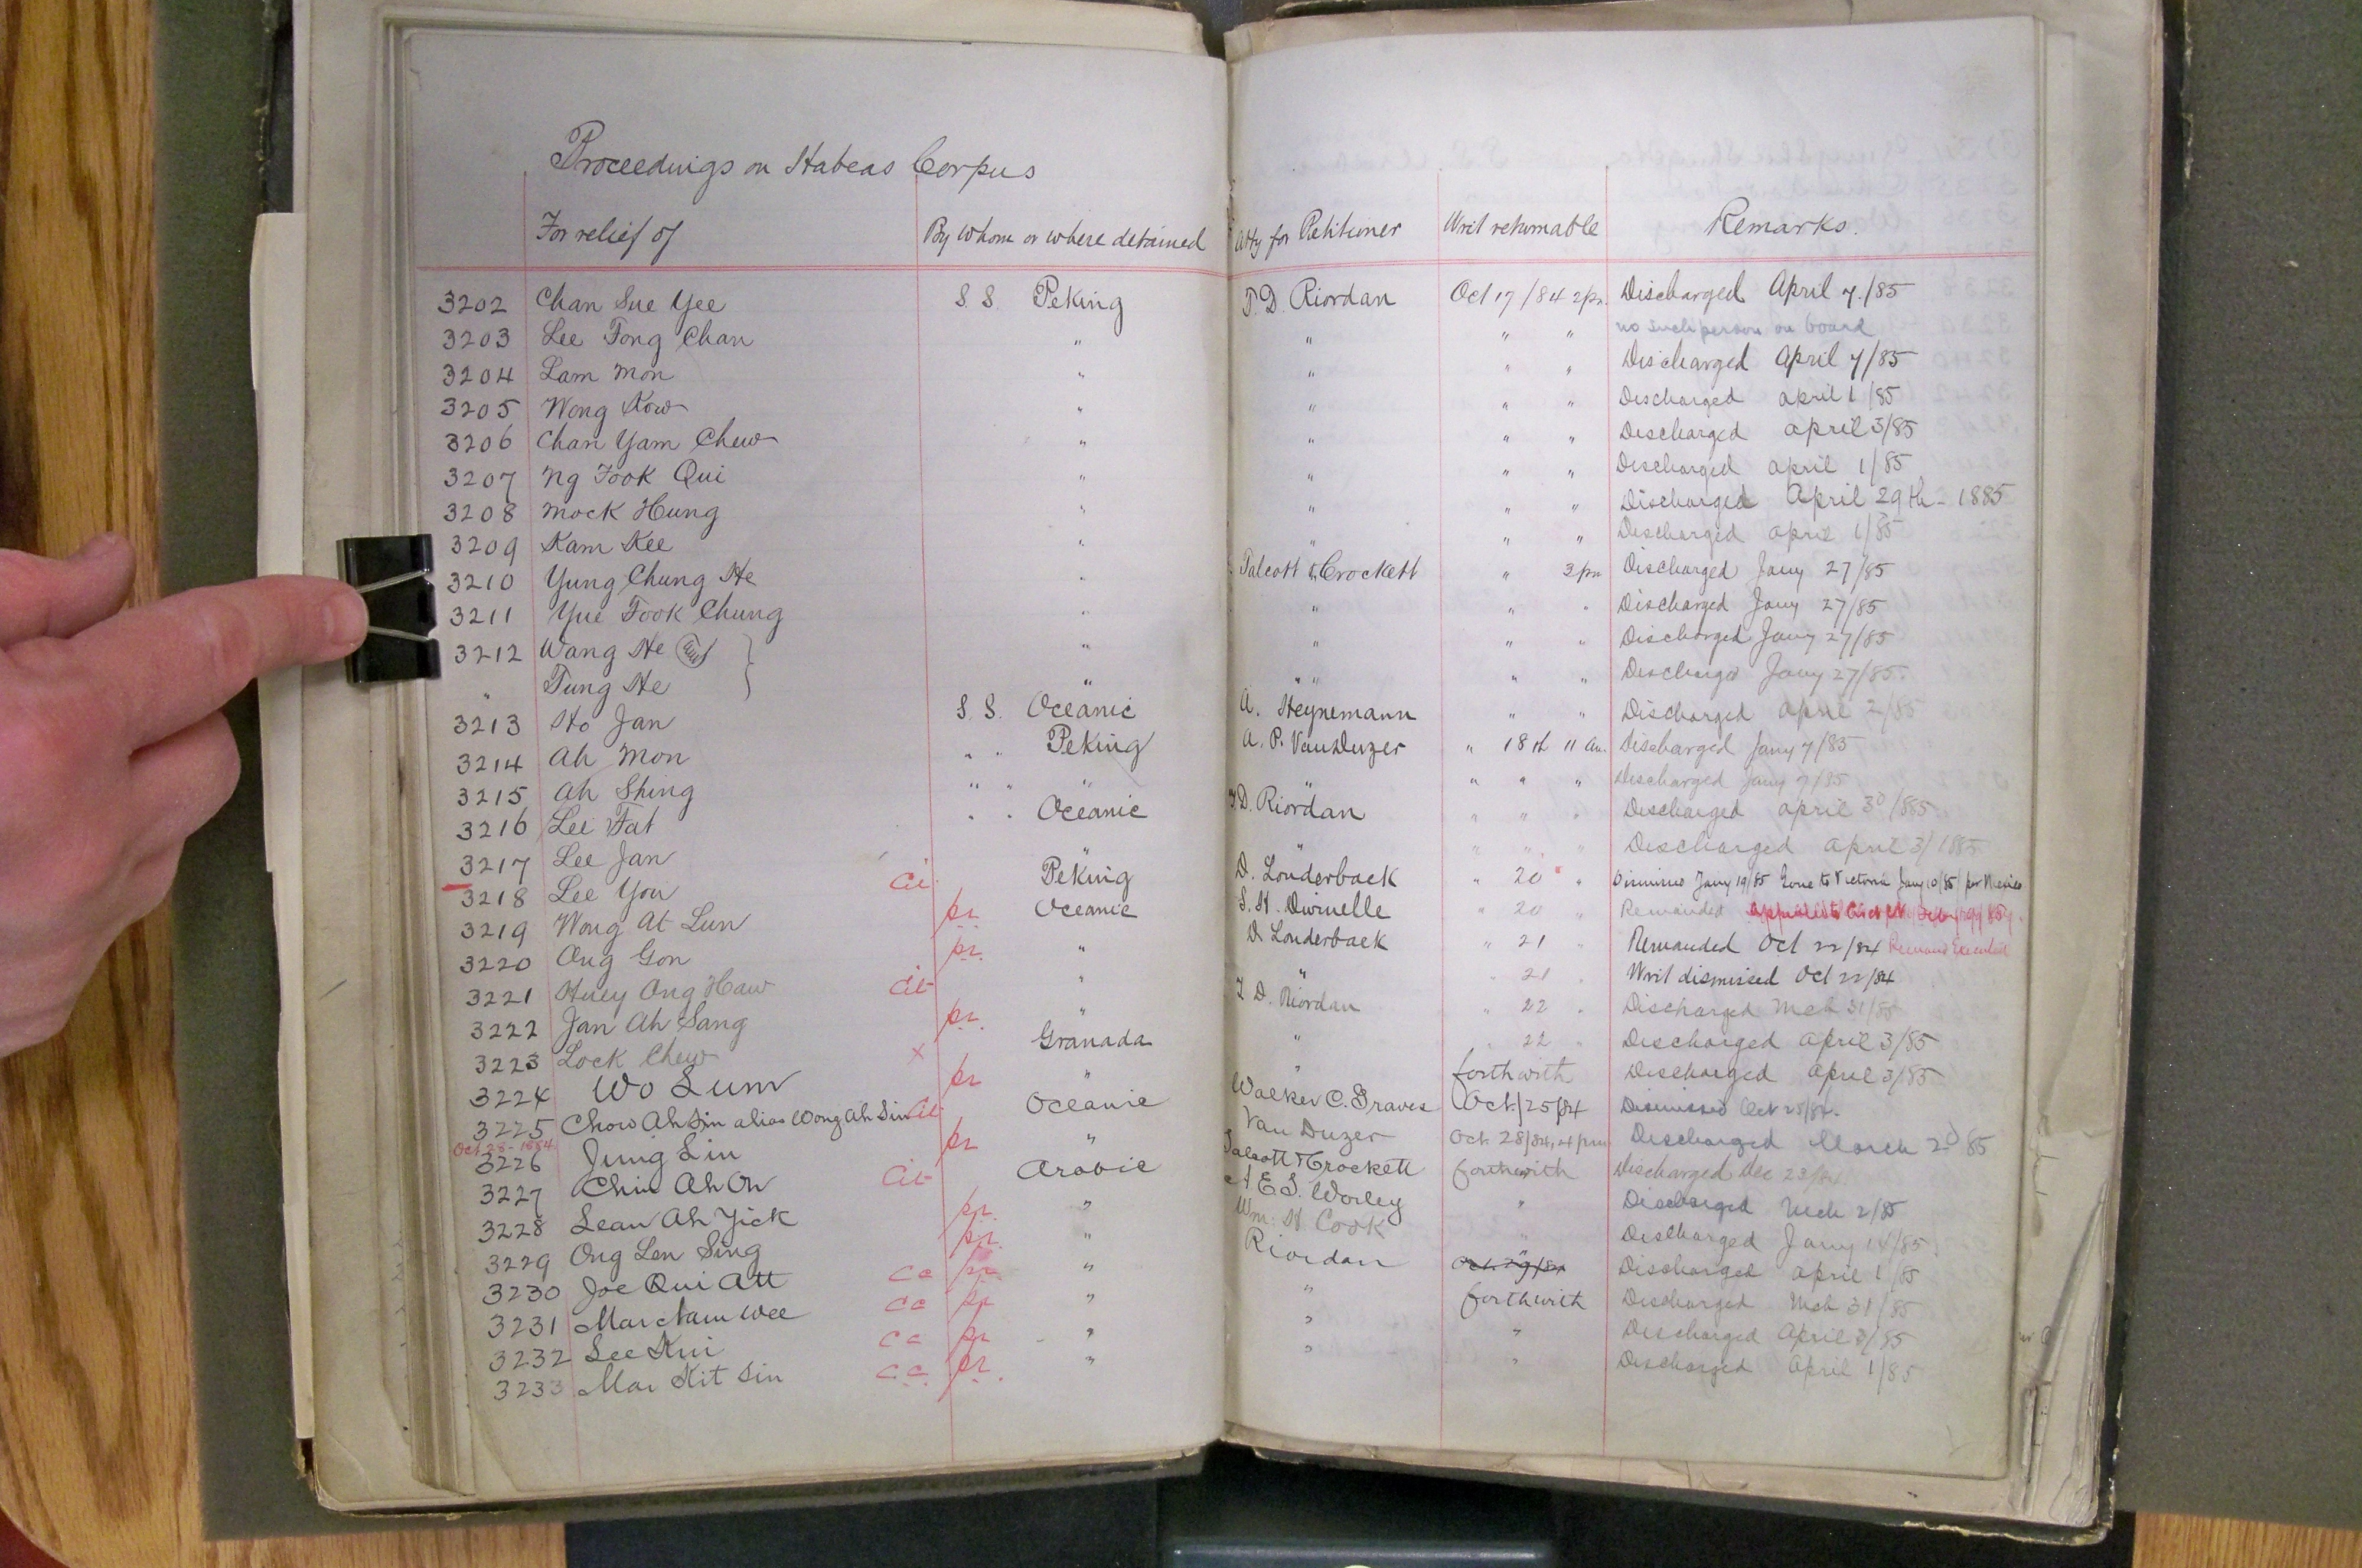 Proceedings on Habeas Corpus
For relief of By whom or where detained Atty for Petitioner Writ returnable Remarks.
3202 Chan Sue Yee S. S. Peking T. D. Riordan Oct 17/84 2 pm. Discharged April 7./85
3203 Lee Tong Chan " " " " no such person on board
3204 Lam Mon " " " " Discharged April 7/85
3205 Wong Kow " " " " Discharged april 1/85
3206 Chan Yam Chew " " " " Discharged april 3/85
3207 Ng Fook Qui " " " " Discharged april 1/85
3208 Mock Hung " " " " Discharged April 29th - 1885
3209 Kam Kee " " " " Discharged april 1/85
3210 Yung Chung He " Talcott & Crockett " 3 pm Discharged Jany 27/85
3211 Yue Fook Chung " " " " Discharged Jany 27/85
3212 Wang He " " " " Discharged Jany 27/85
" Tung He " " " " " Discharged Jany 27/85.
3213 Ho Jan S. S. Oceanic A. Heynemann " " Discharged April 2/85
3214 Ah Mon " " Peking A. P. VanDuzer " 18th 11 am. Discharged Jany 7/85
3215 Ah Shing " " " " " " " Discharged Jany 7/85
3216 Lee Fat " " Oceanic T. D. Riordan " " " Discharged april 3d/885
3217 Lee Jan " " " " " Discharged april 3/1885
3218 Lee You Cit Peking D. Louderback " 20 " Dismissed Jany 19/85 Gone to Victoria Jany 10/85 per Mexico
3219 Wong At Lun pr. Oceanic S. H. Dwinelle " 20 " Remanded
3220 Ong Gon pr. " D Louderback " 21 " Remanded Oct 22/84 Remand Executed
3221 Huey Ong Haw Cit " " " 21 " Writ dismissed Oct 22/84
3222 Jan Ah Sang pr. " T. D. Riordan " 22 " Discharged Mch 31/85
3223 Lock Chew x Granada " " 22 " Discharged April 3/85
3224 Wo Lum pr " " forthwith Discharged April 3/85
3225 Chow Ah Sin alias Wong Ah Sin Cit Oceanic Walker C. Graves Oct./25/84 Dismissed Oct 25/84.
Oct 28-1884
3226 Jung Lin pr " Van Duzer Oct. 28/84, 4 pm Discharged March 2d 85
3227 Chin Ah On Cit Arabic Talcott & Crockett forthwith Discharged Dec 23/84.
3228 Lean Ah Yick pr. " A E. S. Worley " Discharged Mch 2/85
3229 Ong Len Sing pr. " Wm. H. Cook " Discharged Jany 14/85
3230 Joe Qui Att Cc pr. " Riordan Oct. 29/84 Discharged April 1/85
3231 Mar Nam Wee Cc pr " " forthwith Discharged Mch 31/85
3232 Lee Kui Cc pr " " " Discharged April 3/85
3233 Mar Kit Sin Cc. pr. " " " Discharged April 1/85